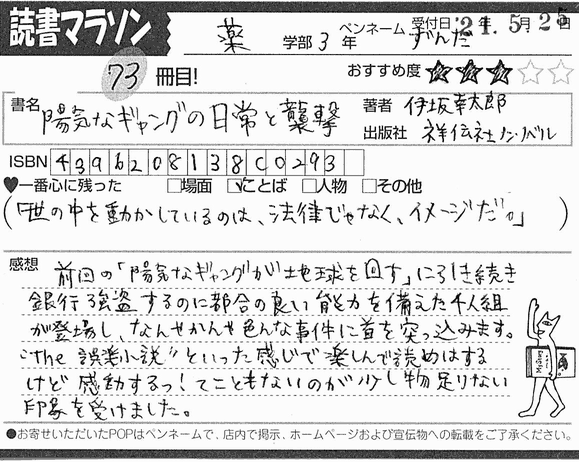 読書マラソン
薬 学部 3 年 ペンネーム ずんだ 受付日 '21.5月25日
73 冊目!
おすすめ度 ★★★☆☆
書名 陽気なギャングの日常と襲撃
著者 伊坂幸太郎
出版社 祥伝社ノベル
ISBN 4396208138C0293
♥一番心に残った □場面 ☑ことば □人物 □その他
(「世の中を動かしているのは、法律じゃなく、イメージだ。」)
感想 前回の「陽気なギャングが地球を回す」に引き続き
銀行強盗するのに都合の良い能力を備えた4人組
が登場し、なんやかんや色んな事件に首を突っ込みます。
"the 誤楽小説"といった感じで楽しんで読めはする
けど感動するっ!てこともないのが少し物足りない
印象を受けました。
●お寄せいただいたPOPはペンネームで、店内で掲示、ホームページおよび宣伝物への転載をご了承ください。